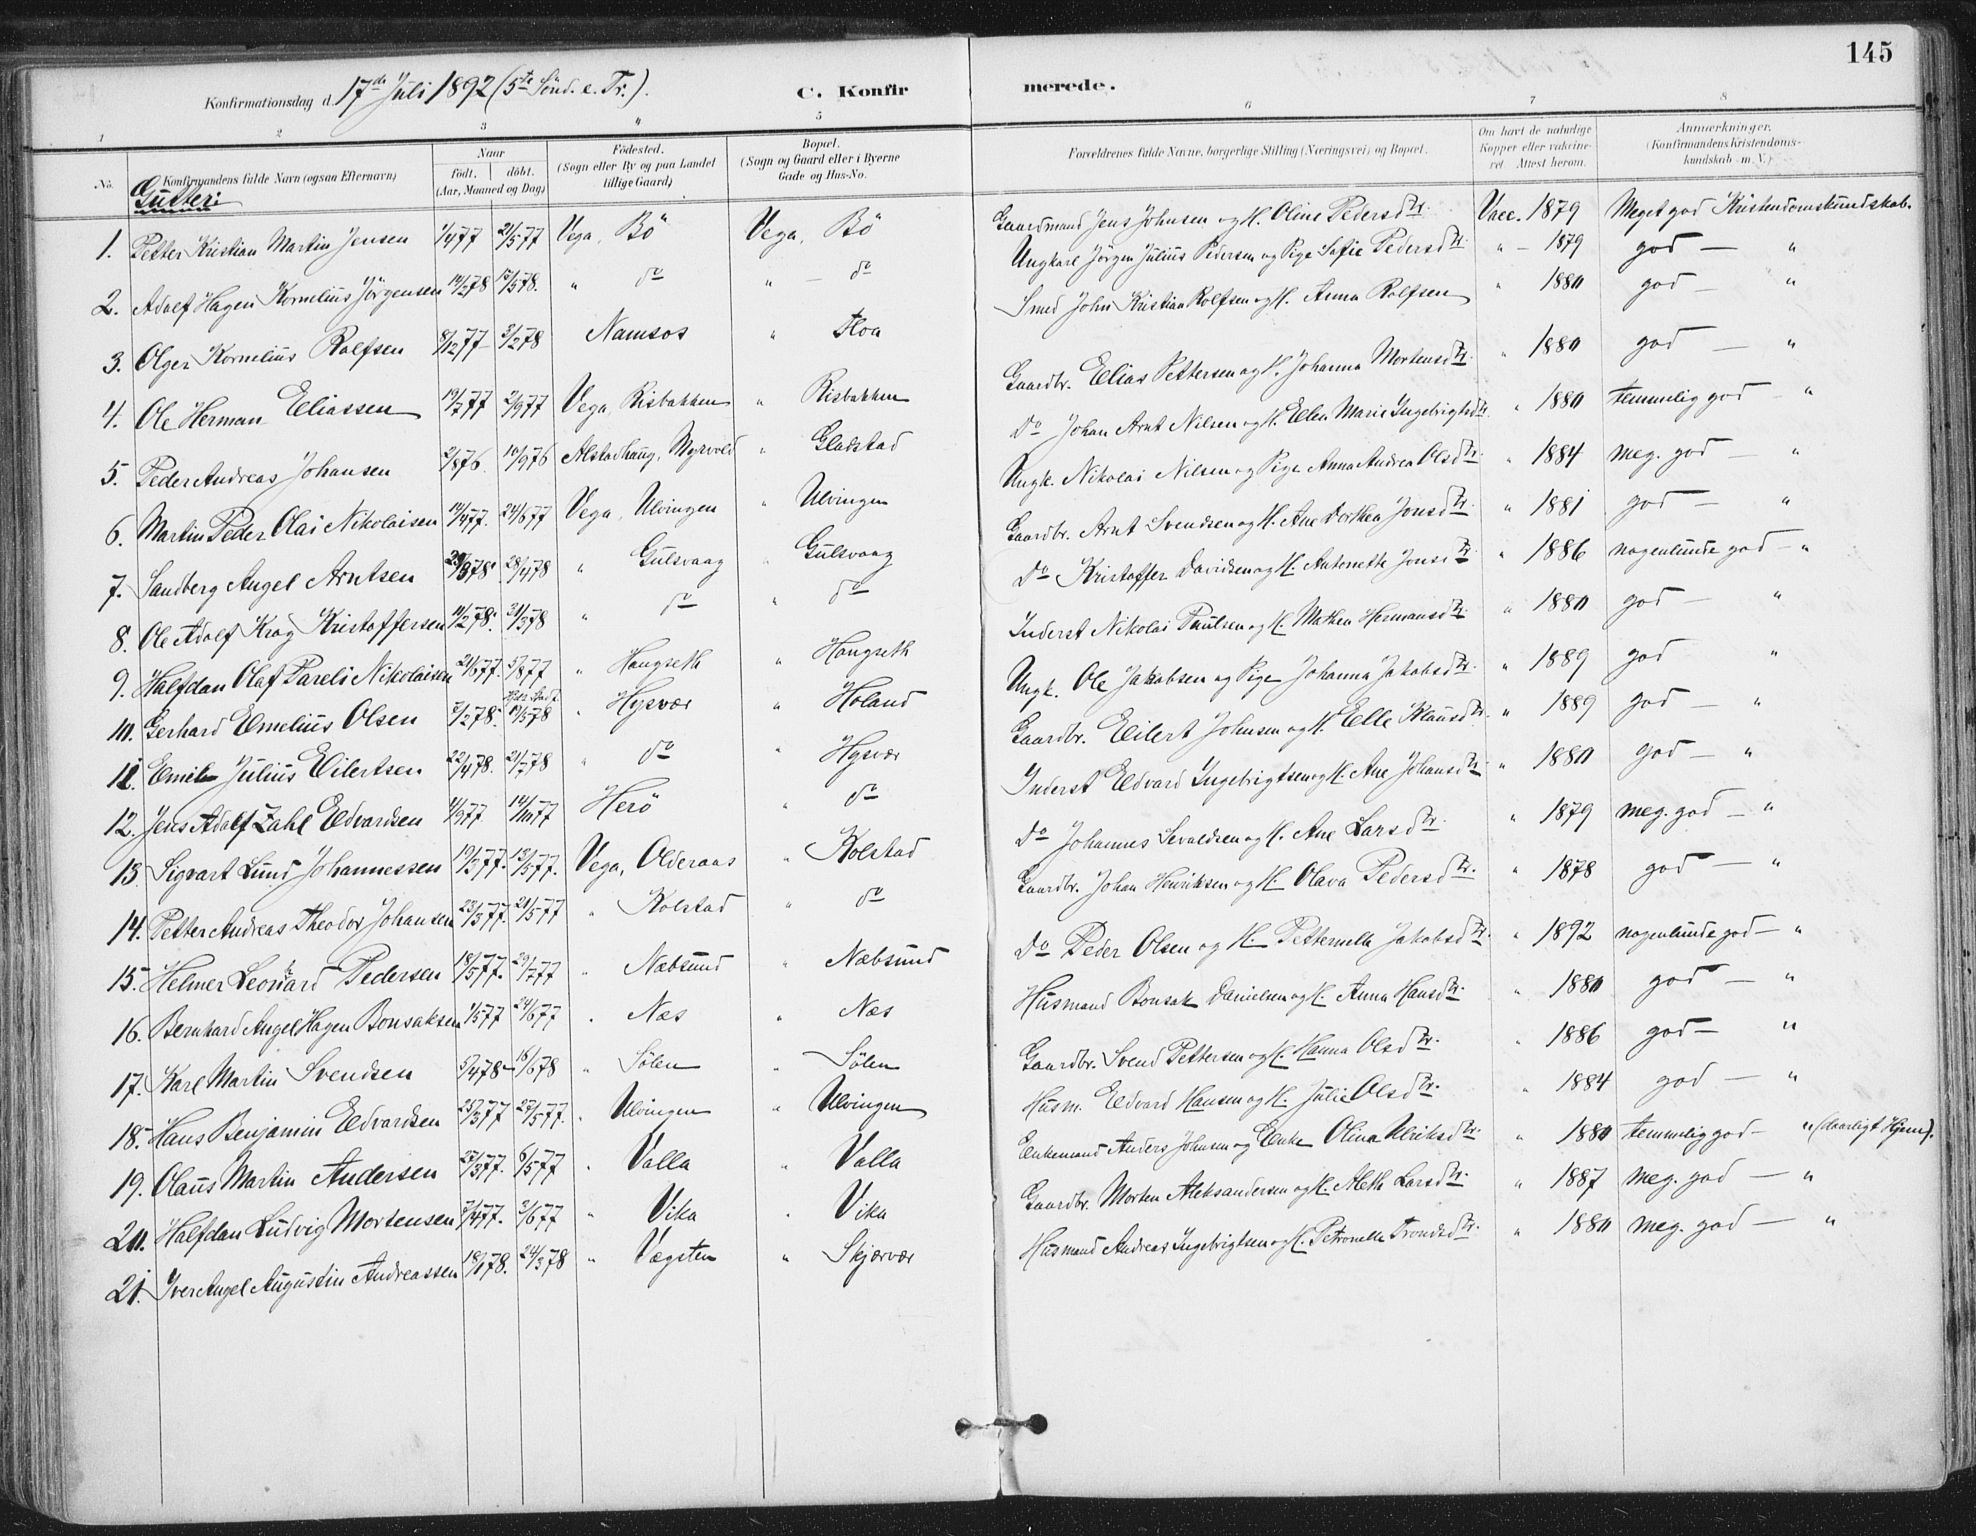 145
Konfirmationsdag d. 17de Juli 1892 (5te Sönd. e. Tr.). C. Konfirmerede.
1 2 3 " 5 6 7 8
No. Konfirmandens fulde Navn (ogsaa Efternavn) Naar födt. döbt. (Aar, Maaned og Dag) Födested. (Sogn eller By og paa Landet tillige Gaard) Bopæl. (Sogn og Gaard eller i Byerne Gade og Hus-No. Forældrenes fulde Navne, borgerlige Stilling (Næringsvei) og Bopæl. Om havt de naturlige Kopper eller vaccineret. Attest herom. Anmærkninger. (Konfirmandens Kristendomskundskab m. V.)
Gutter:
1. Petter Kristian Martin Jensen 1/4 77 21/5 77 Vega, Bö Vega, Bö Gaardmand Jens Johnsen og H. Oline Pedersdtr. Vacc. 1879 Meget god Kristendomskundskab.
2. Adolf Hagen Kornelius Jörgensen 14/2 78 12/5 78. " do " — do Ungkarl Jörgen Julius Pedersen og Pige Sofie Pedersdtr. " — 1879 god — "
3. Olger Kornelius Rolfsen 8/12 77 3/2 78 Namsos " Floa Smed John Kristian Rolfsen og H. Anna Rolfsen " 1880 god — "
4. Ole Herman Eliassen 19/7 77 2/9 77 Vega, Risbakken " Risbakken Gaardbr. Elias Pettersen og H. Johanna Mortensdtr. " 1880 god — "
5. Peder Andreas Johansen 2/8 76. 10/9 76 Alstadhaug, Myrvold " Gladstad Do Johan Arnt Nilsen og H. Ellen Marie Ingebrigtsdtr. " 1880 temmelig god — "
6. Martin Peder Olai Nikolaisen 14/4 77. 24/6 77 Vega, Ulvingen " Ulvingen Ungk. Nikolai Nilsen og Pige Anna Andrea Olsdtr. " 1884 meg. god — "
7. Sandberg Angel Arntsen 28/3 78. 28/4 78 " Gulsvaag " Gulsvaag Gaardbr. Arnt Svendsen og H. Ane Dorthea Jonsdtr. " 1881 god — "
8. Ole Adolf Krog Kristoffersen 11/2 78. 31/3 78 " do " do Do Kristoffer Davidsen og H. Antonette Jonsdtr " 1886 nogenlunde god — "
9. Halfdan Olaf Pareli Nikolaisen 21/6 77. 5/8 77 " Hongseth " Hongseth Inderst Nikolai Paulsen og H. Mathea Hermansdtr. " 1880 god — "
10. Gerhard Emelius Olsen 3/2 78. 19/5 78 " Hysvær " Holand Ungk. Ole Jakobsen og Pige Johanna Jakobsdtr. " 1889 god — "
11. Emil Julius Eilertsen 22/4 78. 21/7 78 " do " Hysvær Gaardbr. Eilert Johnsen og H. Elle Klausdtr. " 1889 god — "
12. Jens Adolf Zahl Edvardsen 11/9 77 14/10 77 Herö " do Inderst Edvard Ingebrigtsen og H. Ane Johansdtr. " 1880 god — "
13. Sigvart Lund Johannessen 19/3 77. 13/5 77. Vega, Olderaas " Kolstad Do Johannes Sevaldsen og H. Ane Larsdtr. " 1879 meg. god — "
14. Petter Andreas Theodor Johansen 23/3 77. 21/5 77 " Kolstad " do Gaardbr. Johan Henriksen og H. Olava Pedersdtr. " 1878 god — "
15. Helmer Leonard Pedersen 18/5 77. 29/7 77 " Næbsund " Næbsund Do Peder Olsen og H. Petternella Jakobsdtr. " 1892 nogenlunde god — "
16. Bernhard Angel Hagen Bonsaksen 1/5 77 24/6 77 " Næs " Næs Husmand Bonsak Danielsen og H. Anna Hansdtr. " 1880 god — "
17. Karl Martin Svendsen 5/4 78 16/6 78 " Sölen " Sölen Gaardbr. Svend Pettersen og H. Hanna Olsdtr. " 1886 god — "
18. Hans Benjamin Edvardsen 25/3 77 27/5 77. " Ulvingen " Ulvingen Husm. Edvard Hansen og H. Julie Olsdtr. " 1884 god — "
19. Olaus Martin Andersen 27/3 77. 6/5 77 " Valla " Valla Enkemand Anders Johnsen og Enke Olina Ulriksdtr. " 1880 temmelig god — " (daarligt Hjem).
20. Halfdan Ludvig Mortensen 7/4 77. 3/6 77 " Vika " Vika Gaardbr. Morten Aleksandersen og H. Aleth Larsdtr. " 1887 meg. god — "
21. Iver Angel Augustin Andreassen 18/1 78. 24/3 78 " Vægsten " Skjærvær Husmand Andreas Ingebrigtsen og H. Petronella Trondsdtr. " 1880 meg. god — "